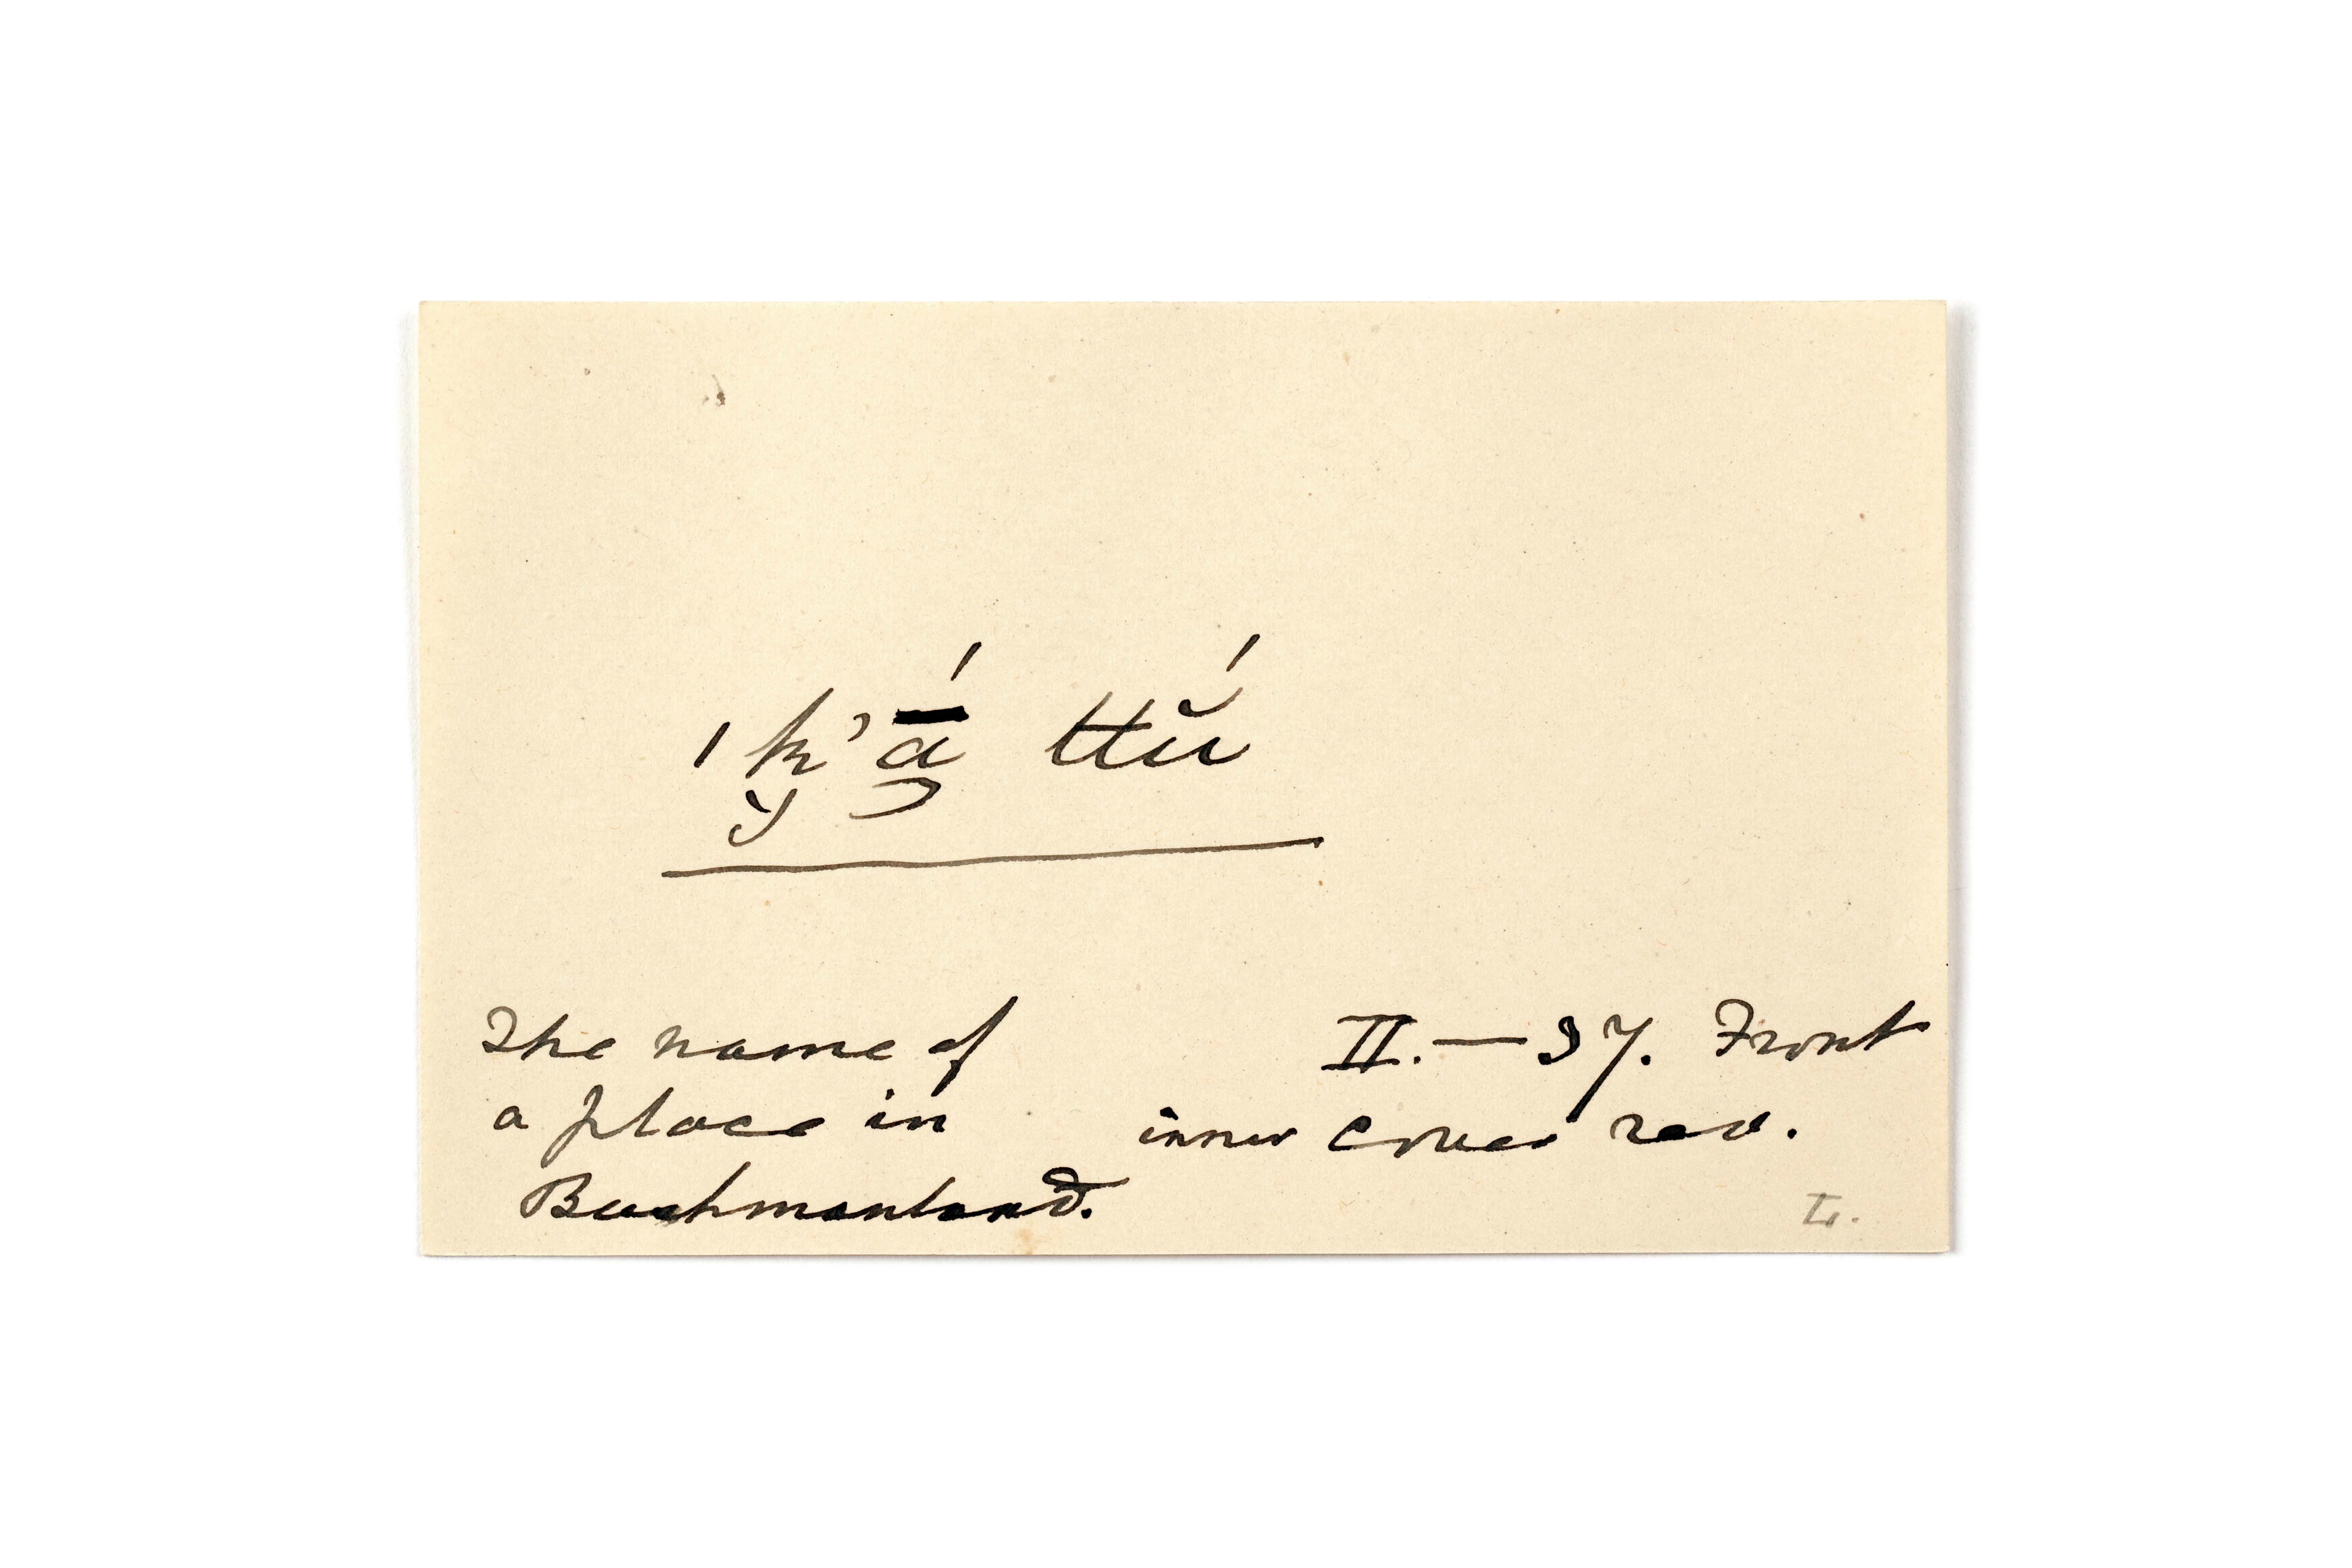 ǀk̮’ā̱́ ttŭ́
The name of
a place in
Bushmanland.
II.—37. Front
inner cover rev.
L.